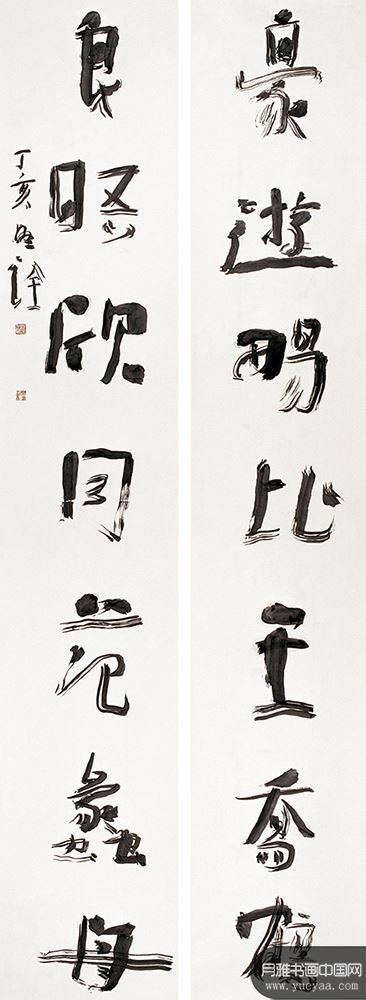 豪遊暢比王喬鶴
良晤欣同范蠡舟
丁亥
月雅书画中国网
www.yueyaa.com